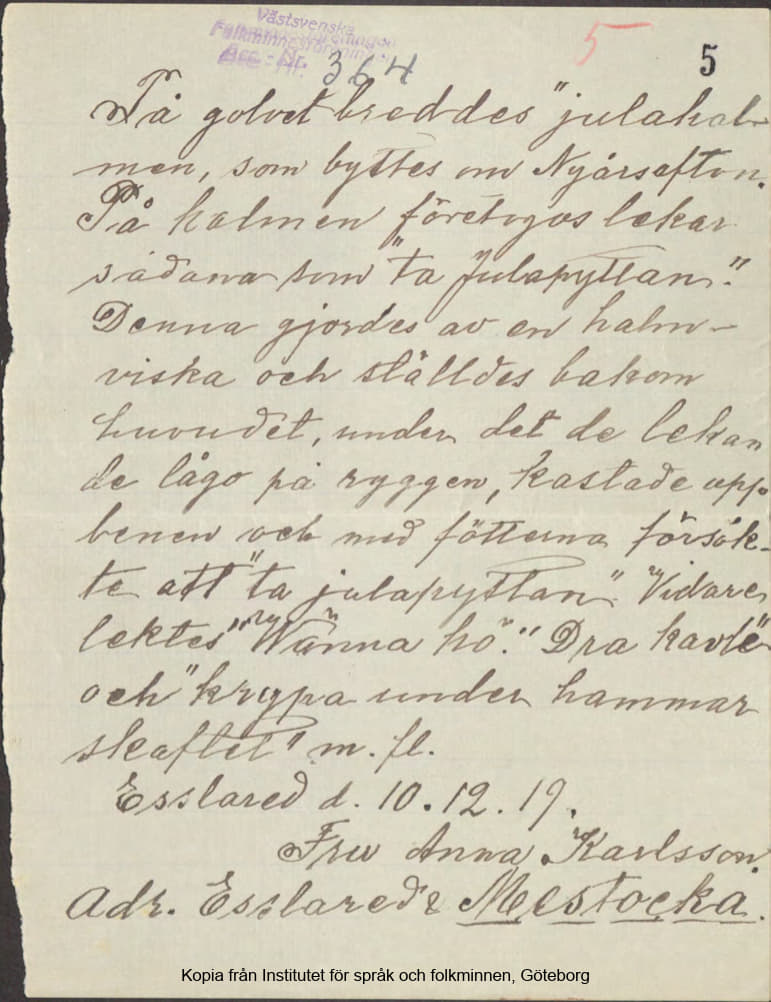 Västsvenska
Folkminnesföreningen
Acc.-Nr. 364
5 5
På golvet breddes "julahal-
men, som byttes om Nyårsafton.
På halmen företogos lekar
sådana som "ta julapyttan".
Denna gjordes av en halm-
viska och ställdes bakom
huvudet, under det de lekan
de lågo på ryggen, kastade upp
benen och med fötterna försök-
te att "ta julapyttan". Vidare
lektes "Wänna hö". "Dra kavle"
och "krypa under hammar
skaftet" m. fl.
Esslared d. 10.12.19.
Fru Anna Karlsson.
Adr. Esslared Mestocka.
Kopia från Institutet för språk och folkminnen, Göteborg